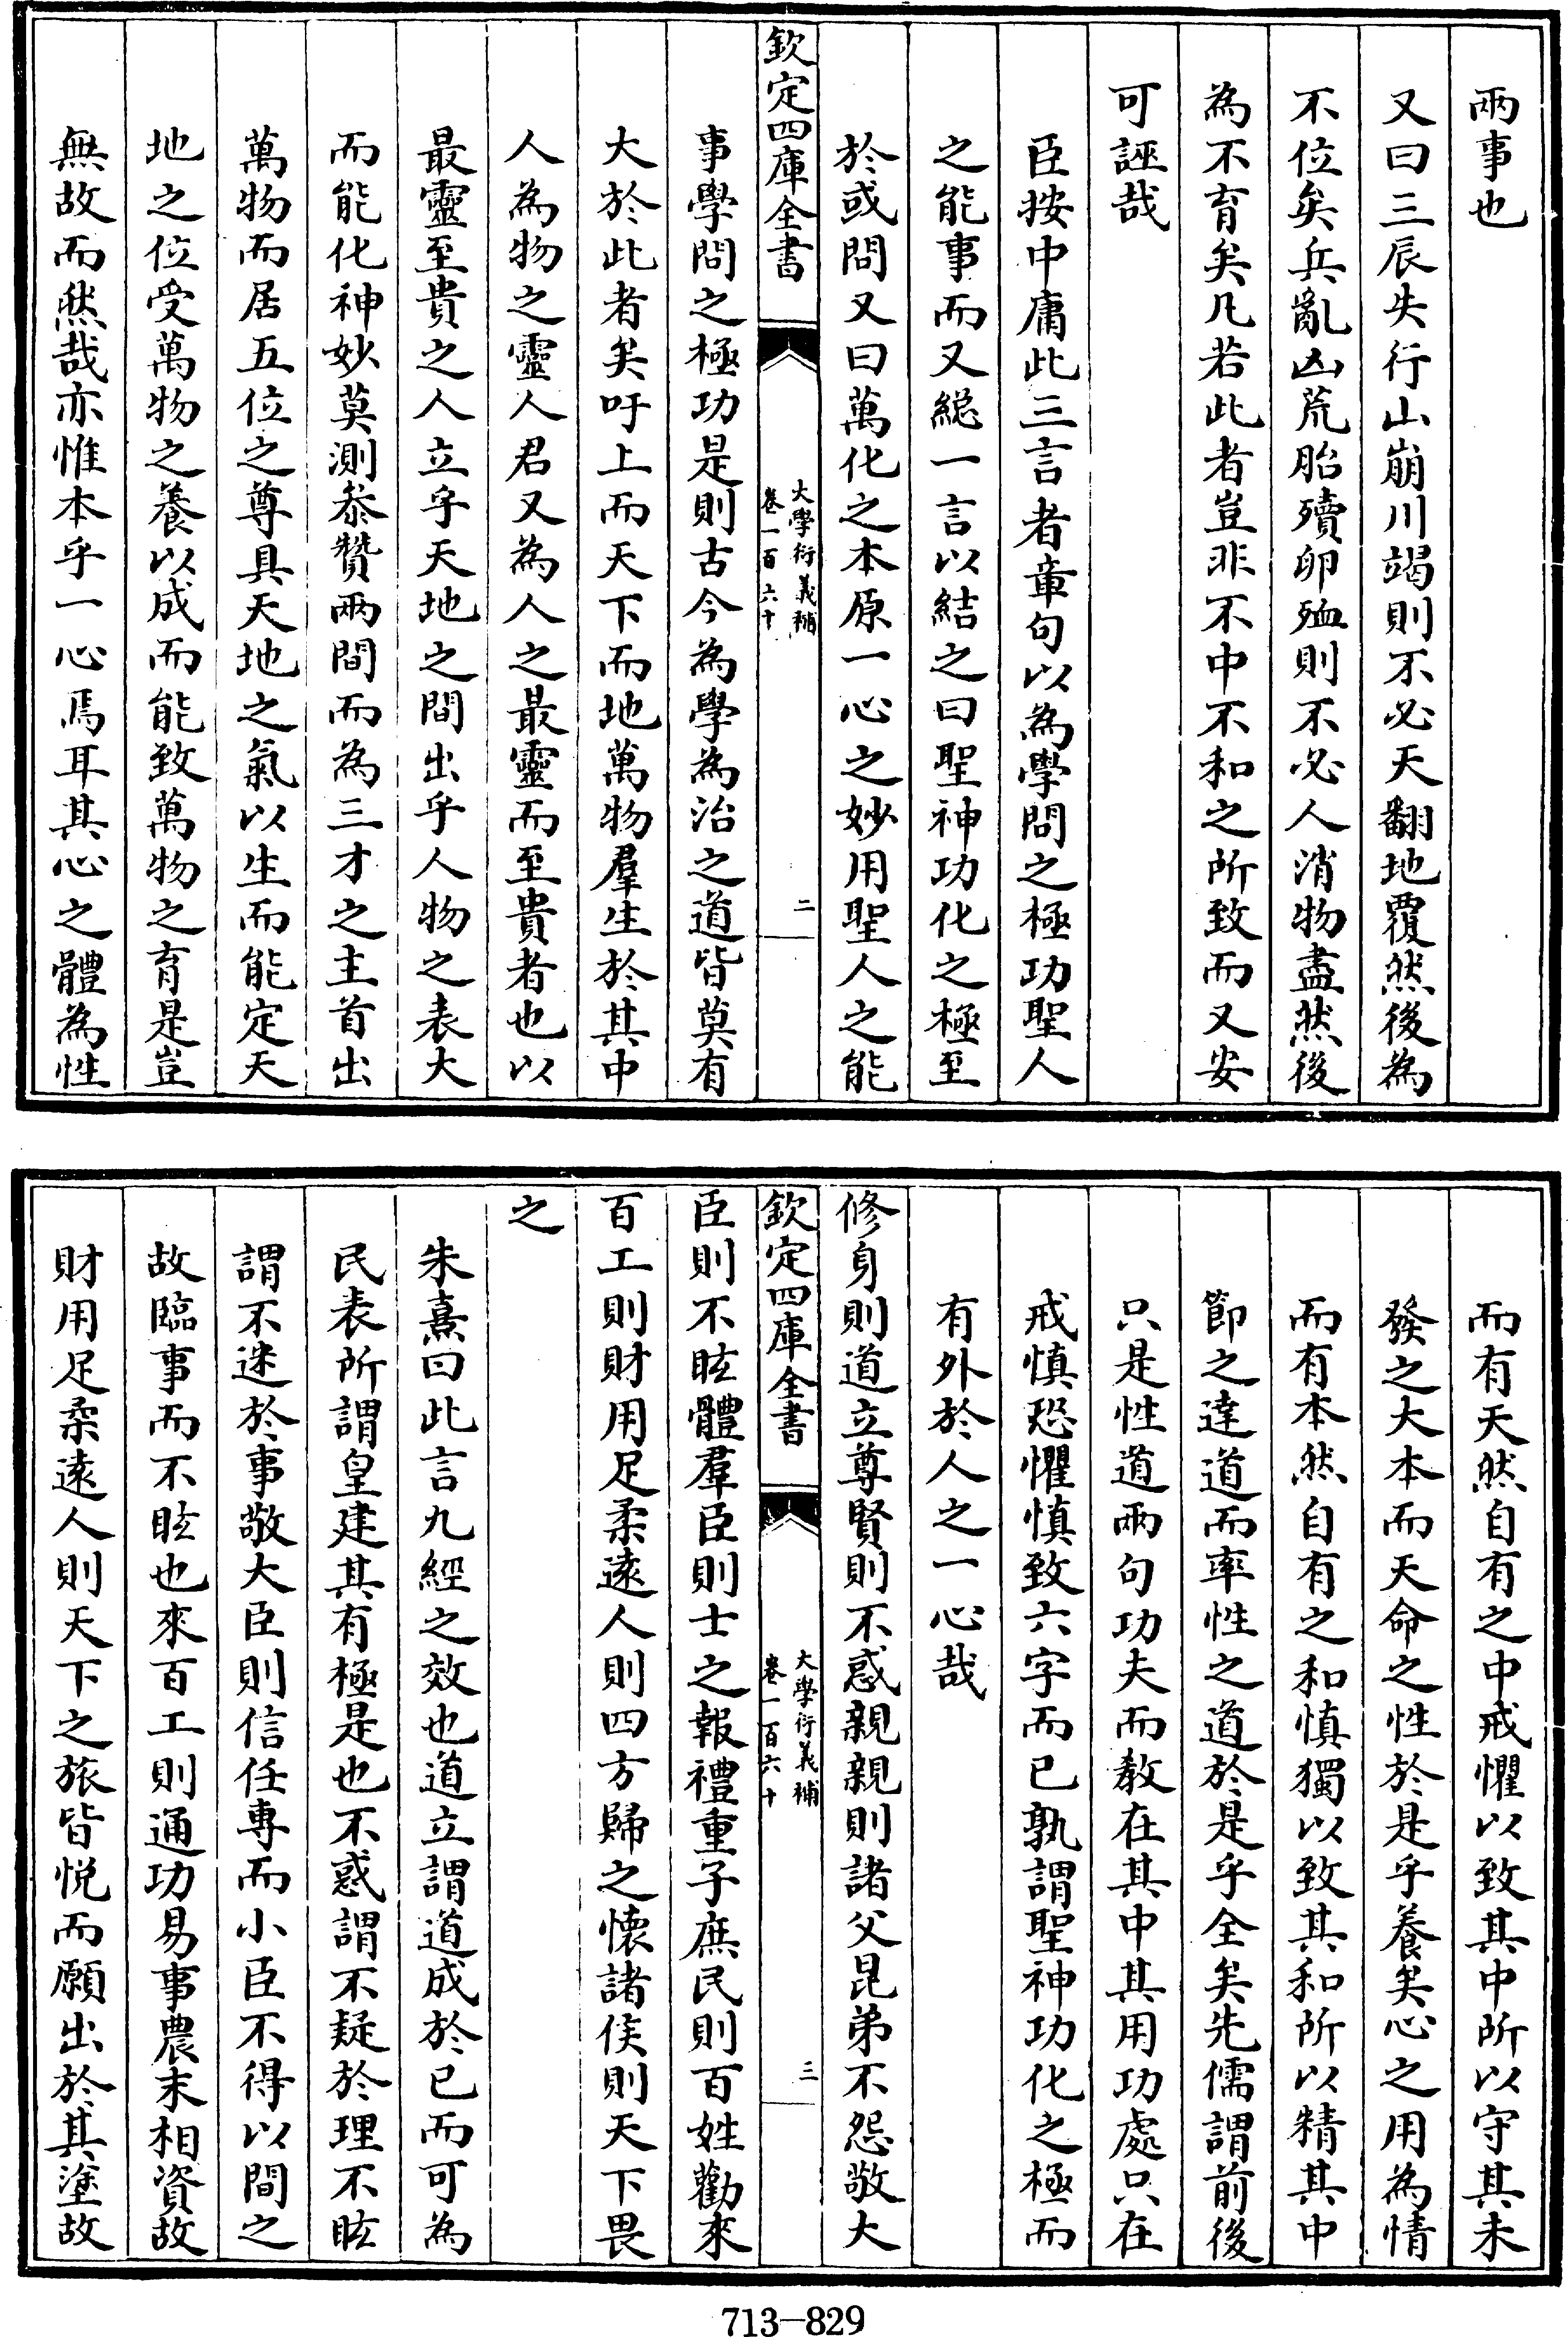 兩事也
又曰三辰失行山崩川竭則不必天翻地覆然後為
不位矣兵亂凶荒胎殰卵殈則不必人消物盡然後
為不育矣凡若此者豈非不中不和之所致而又安
可誣哉
臣按中庸此三言者章句以為學問之極功聖人
之能事而又總一言以結之曰聖神功化之極至
於或問又曰萬化之本原一心之妙用聖人之能
欽定四庫全書
大學衍義補
卷一百六十
二
事學問之極功是則古今為學為治之道皆莫有
大於此者矣吁上而天下而地萬物羣生於其中
人為物之靈人君又為人之最靈而至貴者也以
最靈至貴之人立乎天地之間出乎人物之表大
而能化神妙莫測叅贊兩間而為三才之主首出
萬物而居五位之尊具天地之氣以生而能定天
地之位受萬物之養以成而能致萬物之育是豈
無故而然哉亦惟本乎一心焉耳其心之體為性
而有天然自有之中戒懼以致其中所以守其未
發之大本而天命之性於是乎養矣心之用為情
而有本然自有之和慎獨以致其和所以精其中
節之達道而率性之道於是乎全矣先儒謂前後
只是性道兩句功夫而教在其中其用功處只在
戒慎恐懼慎致六字而已孰謂聖神功化之極而
有外於人之一心哉
修身則道立尊賢則不惑親親則諸父昆弟不怨敬大
欽定四庫全書
大學衍義補
卷一百六十
三
臣則不眩體羣臣則士之報禮重子庶民則百姓勸來
百工則財用足柔遠人則四方歸之懷諸侯則天下畏
之
朱熹曰此言九經之效也道立謂道成於已而可為
民表所謂皇建其有極是也不惑謂不疑於理不眩
謂不迷於事敬大臣則信任專而小臣不得以間之
故臨事而不眩也來百工則通功易事農末相資故
財用足柔遠人則天下之旅皆悅而願出於其塗故
713-829